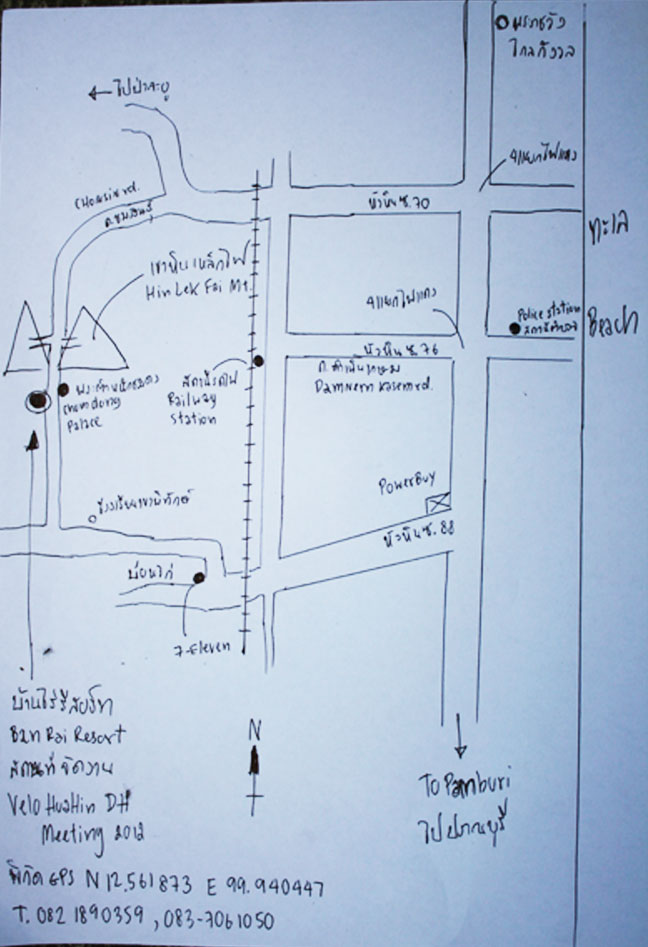 พระราชวัง
ไกลกังวล
ไปป่าละอู
4แยกไฟแดง
Chomsin rd.
ถ.ชมสินธุ์
หัวหิน ซ.70
ทะเล
เขาหินเหล็กไฟ
Hin Lek Fai Mt.
4แยกไฟแดง
Police station
สถานีตำรวจ
Beach
หัวหิน ซ.76
ถ.ดำเนินเกษม
Damnern Kasem rd.
สถานีรถไฟ
Railway
Station
Palace
PowerBuy
หัวหิน ซ.88
บ่อนไก่
7-Eleven
บ้านไร่
Ban Rai Resort
สถานที่จัดงาน
Velo HuaHin DH
Meeting 2012
N
To Pamburi
ไปปราณบุรี
พิกัด GPS N 12.561873 E 99.940447
T. 082 1890359 , 083-7061050